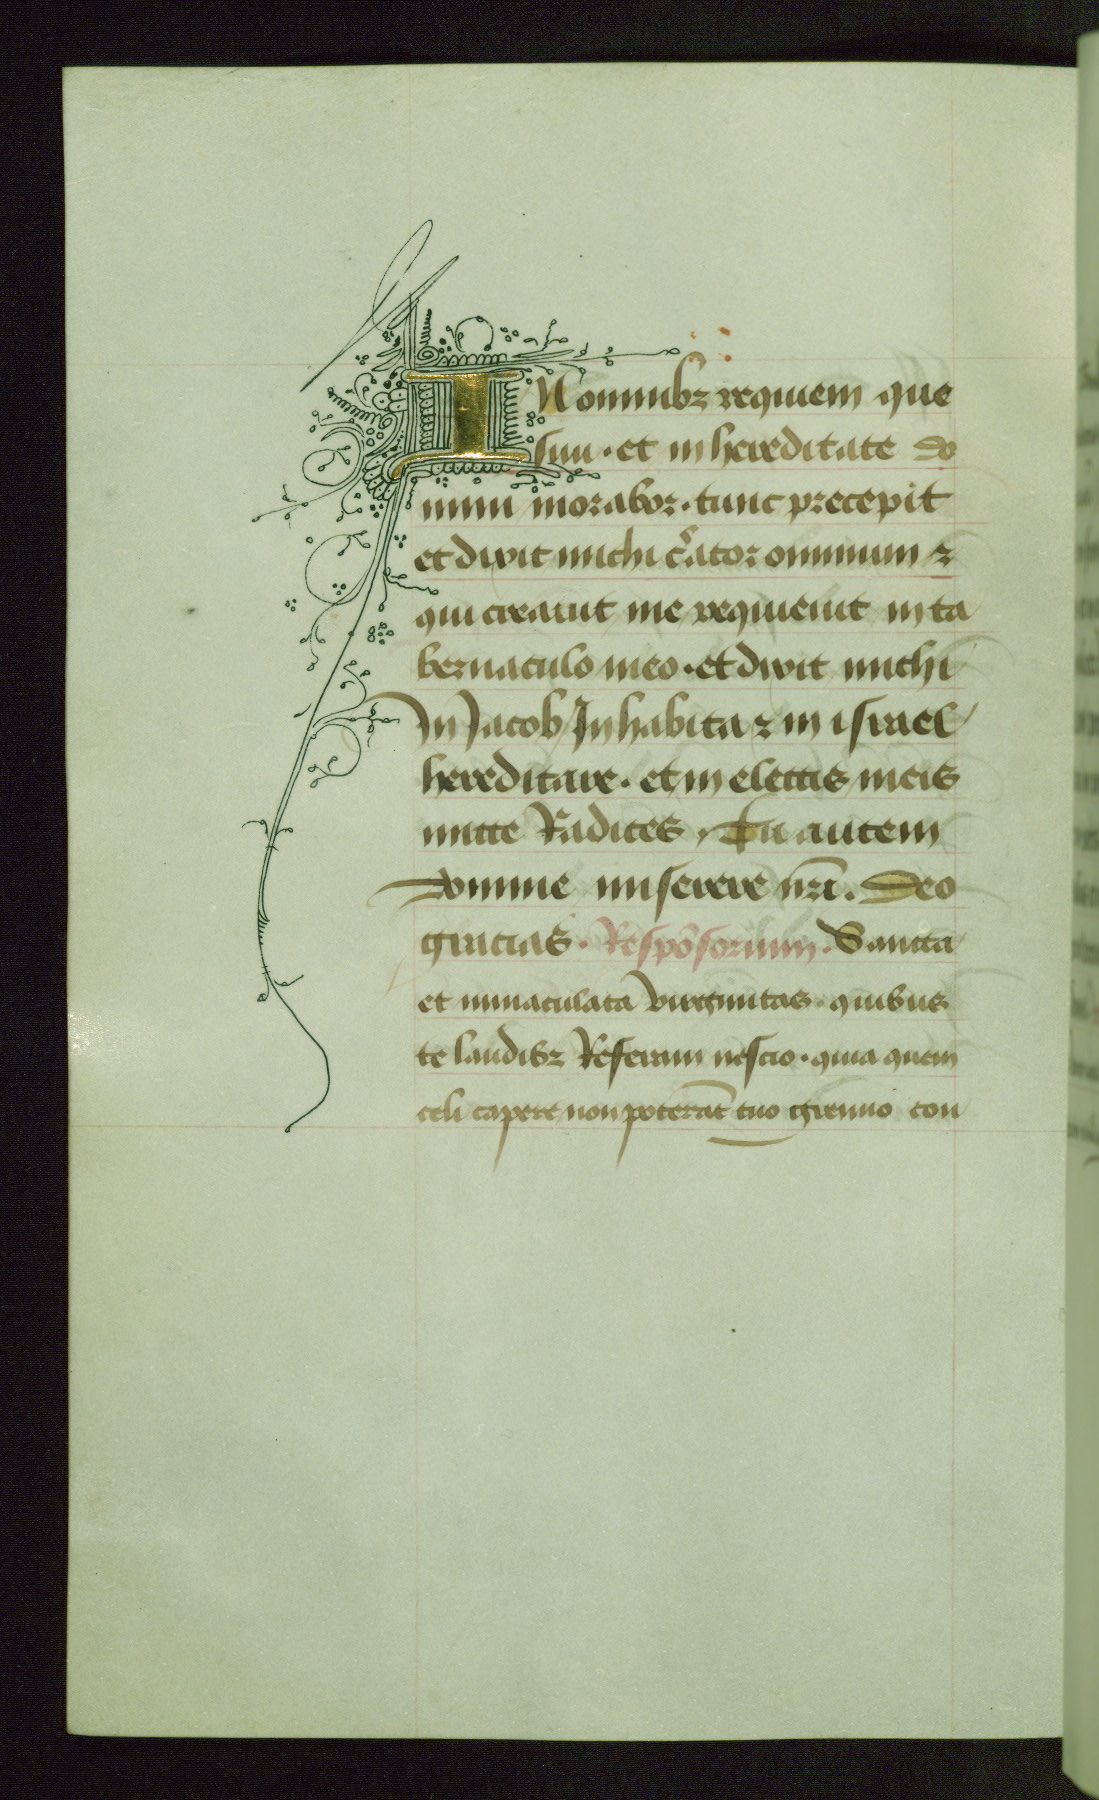 IN omnibꝫ requiem que
siui · et in hereditate do
mini morabor · tunc precepit
et dixit michi c̾ator omnium ⁊
qui creauit me requieuit in ta
bernaculo meo · et dixit michi
In Jacob Inhabita ⁊ in israel
hereditare · et in electis meis
mitte Radices · Tu autem
domine miserere nr̄i . Deo
gracias · Respōsorium . Sancta
et immaculata virginitas · quibus
te laudibꝫ Referam nescio · quia quem
celi capere non poterāt tuo gremio con